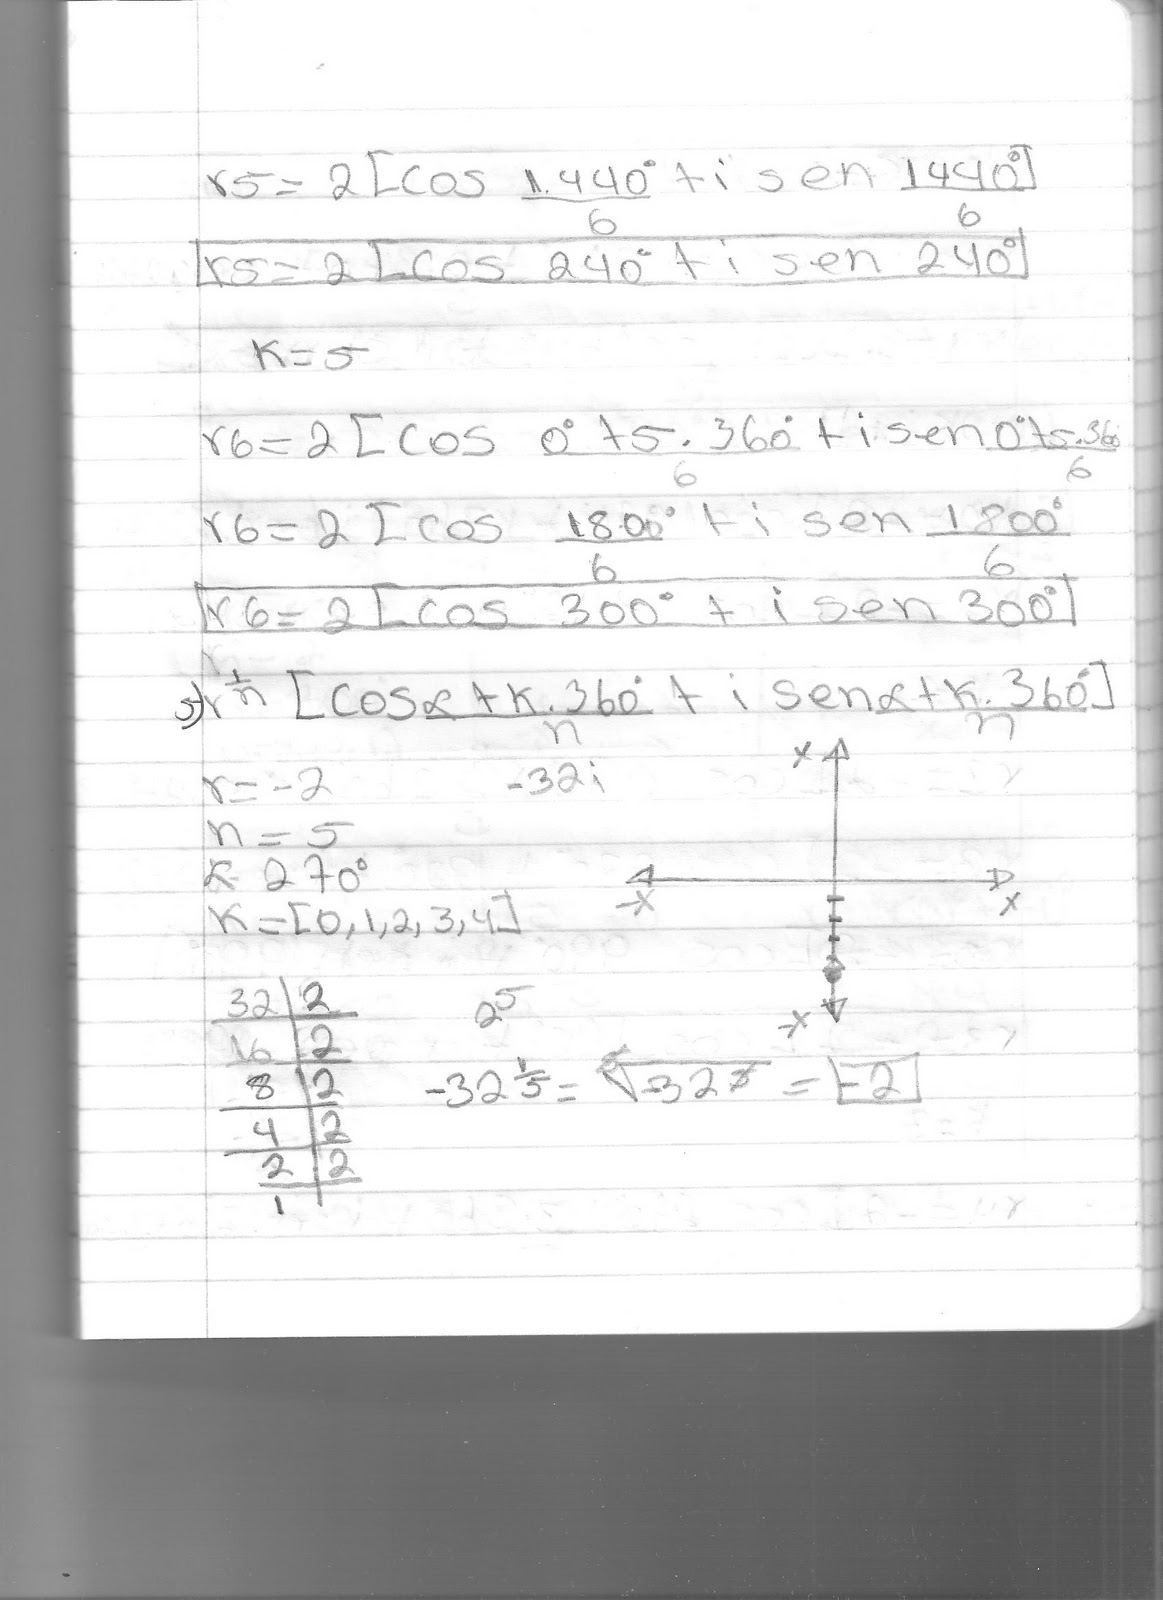 r5 = 2 [cos 1.440°/6 + i sen 1440°/6]
r5 = 2 [cos 240° + i sen 240°]
K = 5
r6 = 2 [cos 0° + 5 . 360°/6 + i sen 0° + 5 . 360/6
r6 = 2 [cos 1800°/6 + i sen 1800°/6
r6 = 2 [cos 300° + i sen 300°]
5) r^1/n [cos α + K . 360°/n + i sen α + K . 360°/n]
r = -2 -32i x
n = 5
α 270° -x x
K = [0, 1, 2, 3, 4]
32 | 2 2^5 -x
16 | 2
8 | 2 -32^1/5 = = -2
4 | 2
2 | 2
1